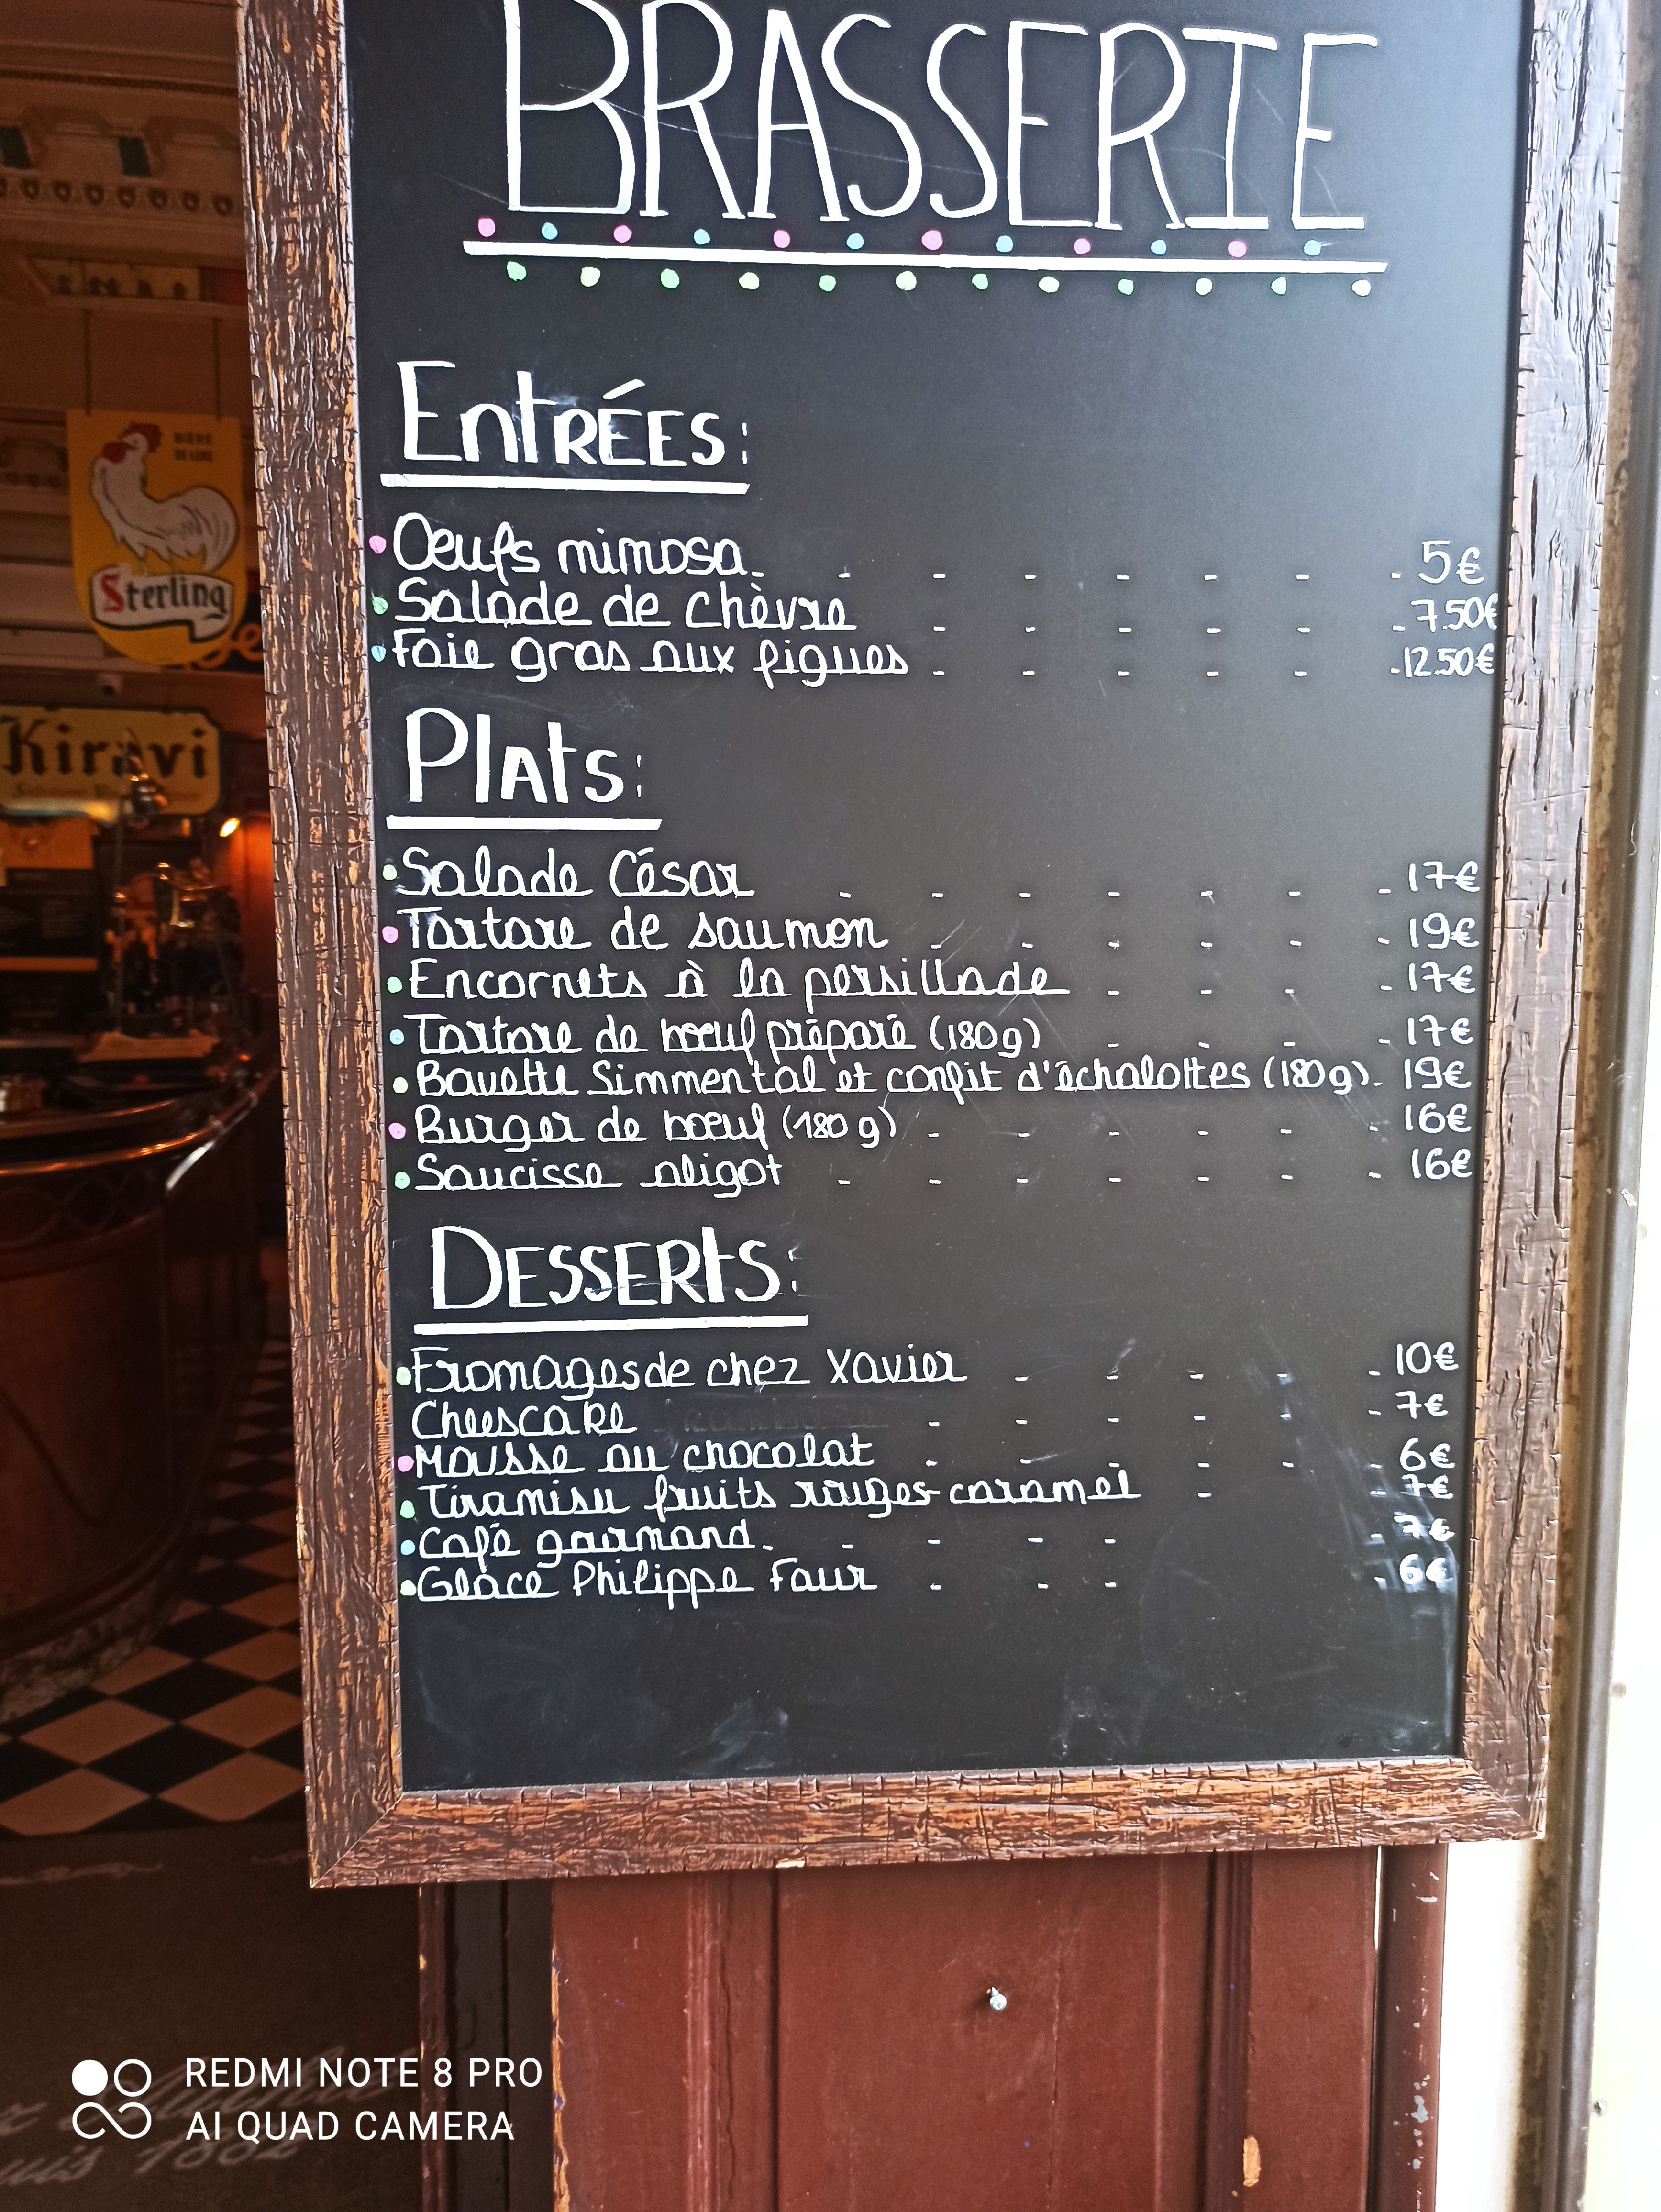 BRASSERIE
EntRÉES:
Oeufs mimosa - - - - - - - 5€
Salade de chèvre - - - - - - 7.50€
Foie gras aux figues - - - - - - 12.50€
PlAts:
Salade César - - - - - - - 17€
Tartare de saumon - - - - - - 19€
Encornets à la persillade - - - - 17€
Tartare de boeuf préparé (180g) - - - - 17€
Bavette Simmental et confit d'échalottes (180g) - 19€
Burger de boeuf (180 g) - - - - - - 16€
Saucisse aligot - - - - - - - 16€
DESSERtS:
Fromages de chez Xavier - - - - - 10€
Cheescake - - - - - - 7€
Mousse au chocolat - - - - - - 6€
Tiramisu fruits rouges-caramel - - 7€
Café gourmand - - - - - - 7€
Glace Philippe Faur - - - - 6€
BIÈRE
DE LUXE
Sterling
Kiravi
REDMI NOTE 8 PRO
AI QUAD CAMERA